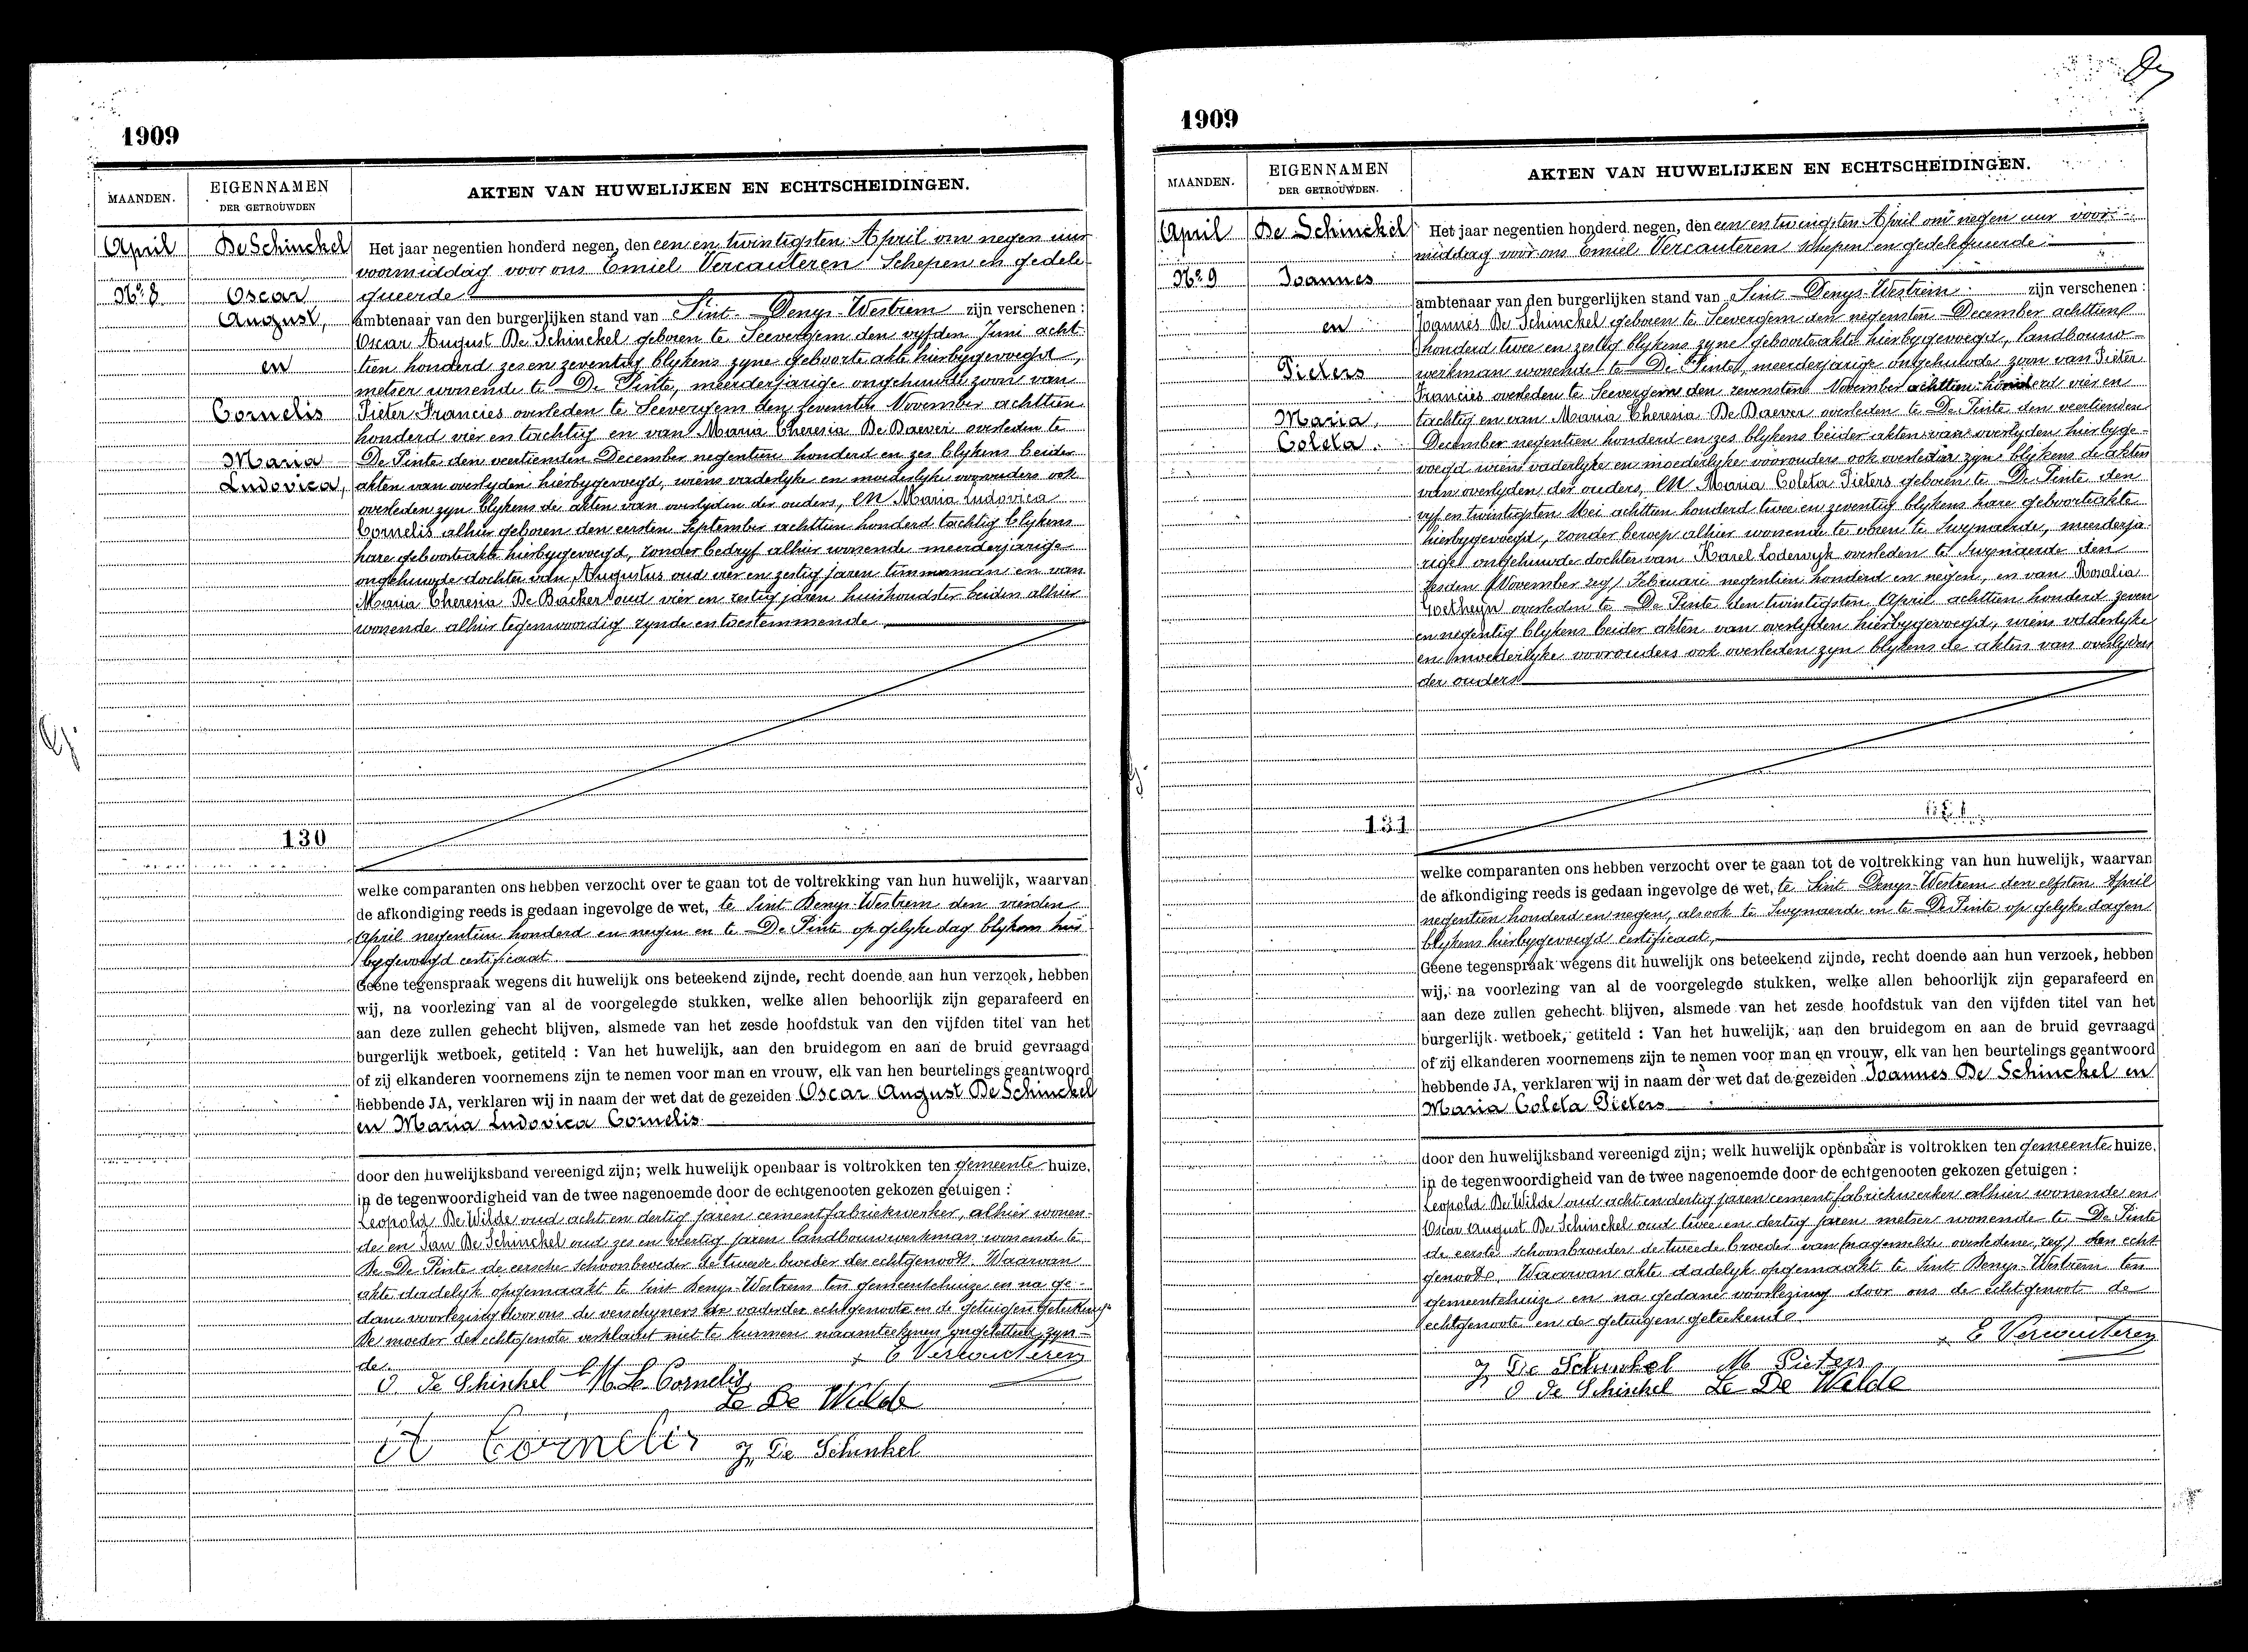 1909
MAANDEN.
EIGENNAMEN
DER GETROUWDEN
AKTEN VAN HUWELIJKEN EN ECHTSCHEIDINGEN.
April
No. 8
De Schinckel
Oscar
August,
en
Cornelis
Maria
Ludovica,
130
Het jaar negentien honderd negen, den een en twintigsten April om negen uur
voormiddag voor ons Emiel Vercauteren Schepen en gedele
gueerde
ambtenaar van den burgerlijken stand van Sint-Denys-Westrem zijn verschenen :
Oscar August De Schinckel geboren te Seevergem den vyfden Juni acht-
tien honderd zes en zeventig blykens zyne geboorte akte hierbygevoegd,
metser wonende te De Pinte, meerderjarige ongehuwde zoon van
Pieter Francies overleden te Seevergem den zevensten November achttien
honderd vier en tachtig en van Maria Theresia De Baever overleden te
De Pinte den veertienden December negentien honderd en zes blykens beider
akten van overlyden hierbygevoegd, wiens vaderlyke en moederlyke voorouders ook
overleden zyn blykens de akten van overlyden der ouders, en Maria Ludovica
Cornelis alhier geboren den eersten September achttien honderd tachtig blykens
hare geboorteakte hierbygevoegd, zonder bedryf alhier wonende meerderjarige
ongehuwde dochter van Augustus oud vier en zestig jaren timmerman en van
Maria Theresia De Backer oud vier en zestig jaren huishoudster beiden alhier
wonende alhier tegenwoordig zynde en toestemmende.
welke comparanten ons hebben verzocht over te gaan tot de voltrekking van hun huwelijk, waarvan
de afkondiging reeds is gedaan ingevolge de wet, te Sint Denys-Westrem den vierden
April negentien honderd en negen en te De Pinte op gelyke dag blykens hier
bygevoegd certificaat
Geene tegenspraak wegens dit huwelijk ons beteekend zijnde, recht doende aan hun verzoek, hebben
wij, na voorlezing van al de voorgelegde stukken, welke allen behoorlijk zijn geparafeerd en
aan deze zullen gehecht blijven, alsmede van het zesde hoofdstuk van den vijfden titel van het
burgerlijk wetboek, getiteld : Van het huwelijk, aan den bruidegom en aan de bruid gevraagd
of zij elkanderen voornemens zijn te nemen voor man en vrouw, elk van hen beurtelings geantwoord
hebbende JA, verklaren wij in naam der wet dat de gezeiden Oscar August De Schinckel
en Maria Ludovica Cornelis
door den huwelijksband vereenigd zijn; welk huwelijk openbaar is voltrokken ten gemeente huize,
in de tegenwoordigheid van de twee nagenoemde door de echtgenooten gekozen getuigen :
Leopold De Wilde oud acht en dertig jaren cementfabriekwerker, alhier wonen-
de en Jan De Schinckel oud zes en veertig jaren landbouwwerkman wonende te
De Pinte de eersche schoonbroeder de tweede broeder des echtgenoots. Waarvan
akte dadelyk opgemaakt te Sint Denys-Westrem ten gemeentehuize en na ge-
dane voorlezing door ons de verschyners de vader der echtgenoote en de getuigen geteekend
De moeder der echtgenote verklaart niet te kunnen naamteekenen ongeletterd zyn-
de.
E Vercauteren
O. De Schinkel M. L. Cornelis
Le De Wilde
A Cornelis J. De Schinkel
1909
MAANDEN.
EIGENNAMEN
DER GETROUWDEN.
AKTEN VAN HUWELIJKEN EN ECHTSCHEIDINGEN.
April
No. 9
De Schinckel
Joannes
en
Pieters
Maria,
Coleta.
131
Het jaar negentien honderd negen, den een en twingsten April om negen uur voor-
middag voor ons Emiel Vercauteren schepen en gedelegueerde
ambtenaar van den burgerlijken stand van Sint-Denys-Westrem zijn verschenen :
Joannes De Schinckel geboren te Seevergem den negensten December achttien
honderd twee en zestig blykens zyne geboorteakte hierbygevoegd, landbouw-
werkman wonende te De Pinte, meerderjarige ongehuwde zoon van Pieter
Francies overleden te Seevergem den zevensten November achttien honderd vier en
tachtig en van Maria Theresia De Baever overleden te De Pinte den veertienden
December negentien honderd en zes blykens beider akten van overlyden hierbyge-
voegd wiens vaderlyke en moederlyke voorouders ook overleden zyn blykens de akten
van overlyden der ouders, en Maria Coleta Pieters geboren te De Pinte den
vyf en twintigsten Mei achttien honderd twee en zeventig blykens hare geboorteakte
hierbygevoegd, zonder beroep alhier wonende te voren te Swynaerde, meerderja-
rige ongehuwde dochter van Karel Lodewyk overleden te Swynaerde den
zesden (November zeg) Februari negentien honderd en negen, en van Rosalia
Goetheyn overleden te De Pinte den twintigsten April achttien honderd zeven
en negentig blykens beider akten van overlyden hierbygevoegd, wiens vaderlyke
en moederlyke voorouders ook overleden zyn blykens de akten van overlyden
der ouders
welke comparanten ons hebben verzocht over te gaan tot de voltrekking van hun huwelijk, waarvan
de afkondiging reeds is gedaan ingevolge de wet, te Sint Denys-Westrem den elfsten April
negentien honderd en negen, alsook te Swynaerde en te De Pinte op gelyke dagen
blykens hierbygevoegd certificaat,
Geene tegenspraak wegens dit huwelijk ons beteekend zijnde, recht doende aan hun verzoek, hebben
wij, na voorlezing van al de voorgelegde stukken, welke allen behoorlijk zijn geparafeerd en
aan deze zullen gehecht blijven, alsmede van het zesde hoofdstuk van den vijfden titel van het
burgerlijk wetboek, getiteld : Van het huwelijk, aan den bruidegom en aan de bruid gevraagd
of zij elkanderen voornemens zijn te nemen voor man en vrouw, elk van hen beurtelings geantwoord
hebbende JA, verklaren wij in naam der wet dat de gezeiden Joannes De Schinckel en
Maria Coleta Pieters
door den huwelijksband vereenigd zijn; welk huwelijk openbaar is voltrokken ten gemeente huize,
in de tegenwoordigheid van de twee nagenoemde door de echtgenooten gekozen getuigen :
Leopold De Wilde oud acht en dertig jaren cementfabriekwerker alhier wonende en
Oscar August De Schinckel oud twee en dertig jaren metser wonende te De Pinte
de eerste schoonbroeder de tweede broeder van (nagemelde overledene, zeg) den echt-
genoote. Waarvan akte dadelyk opgemaakt te Sint Denys-Westrem ten
gemeentehuize en na gedane voorlezing door ons de echtgenoot de
echtgenoote en de getuigen geteekend
E Vercauteren
J. De Schinkel M Pieters
O De Schinkel Le De Wilde